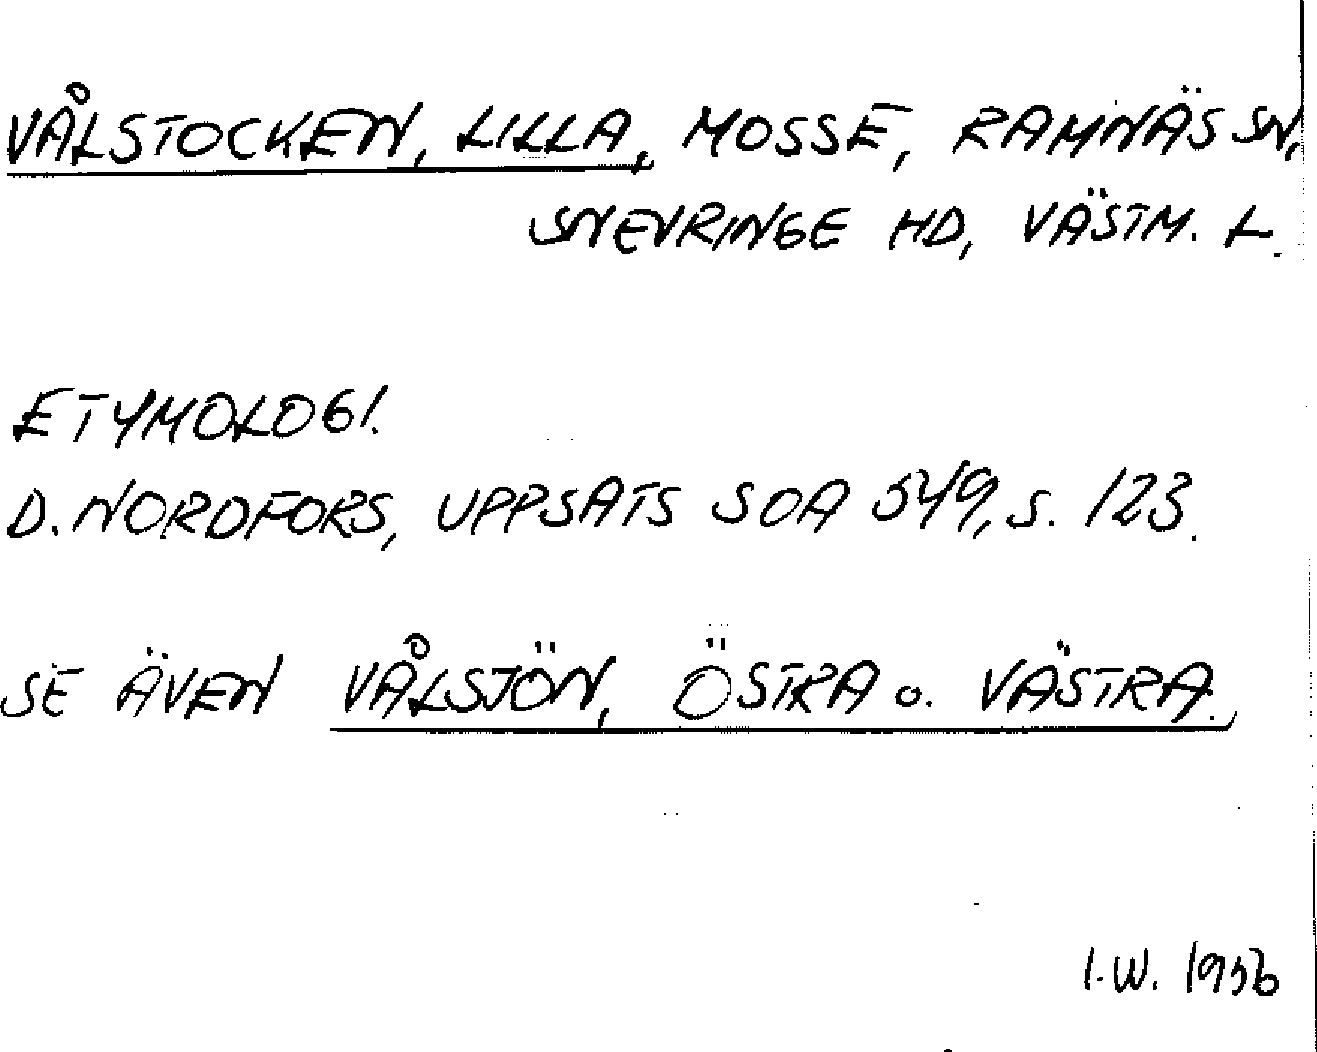 VÅLSTOCKEN, LILLA, MOSSE, RAMNÄS SN,
SNEVRINGE HD, VÄSTM. L.
ETYMOLOGI.
D. NORDFORS, UPPSATS SOA 549, S. 123.
SE ÄVEN VÅLSJÖN, ÖSTRA O. VÄSTRA.
I.W. 1956